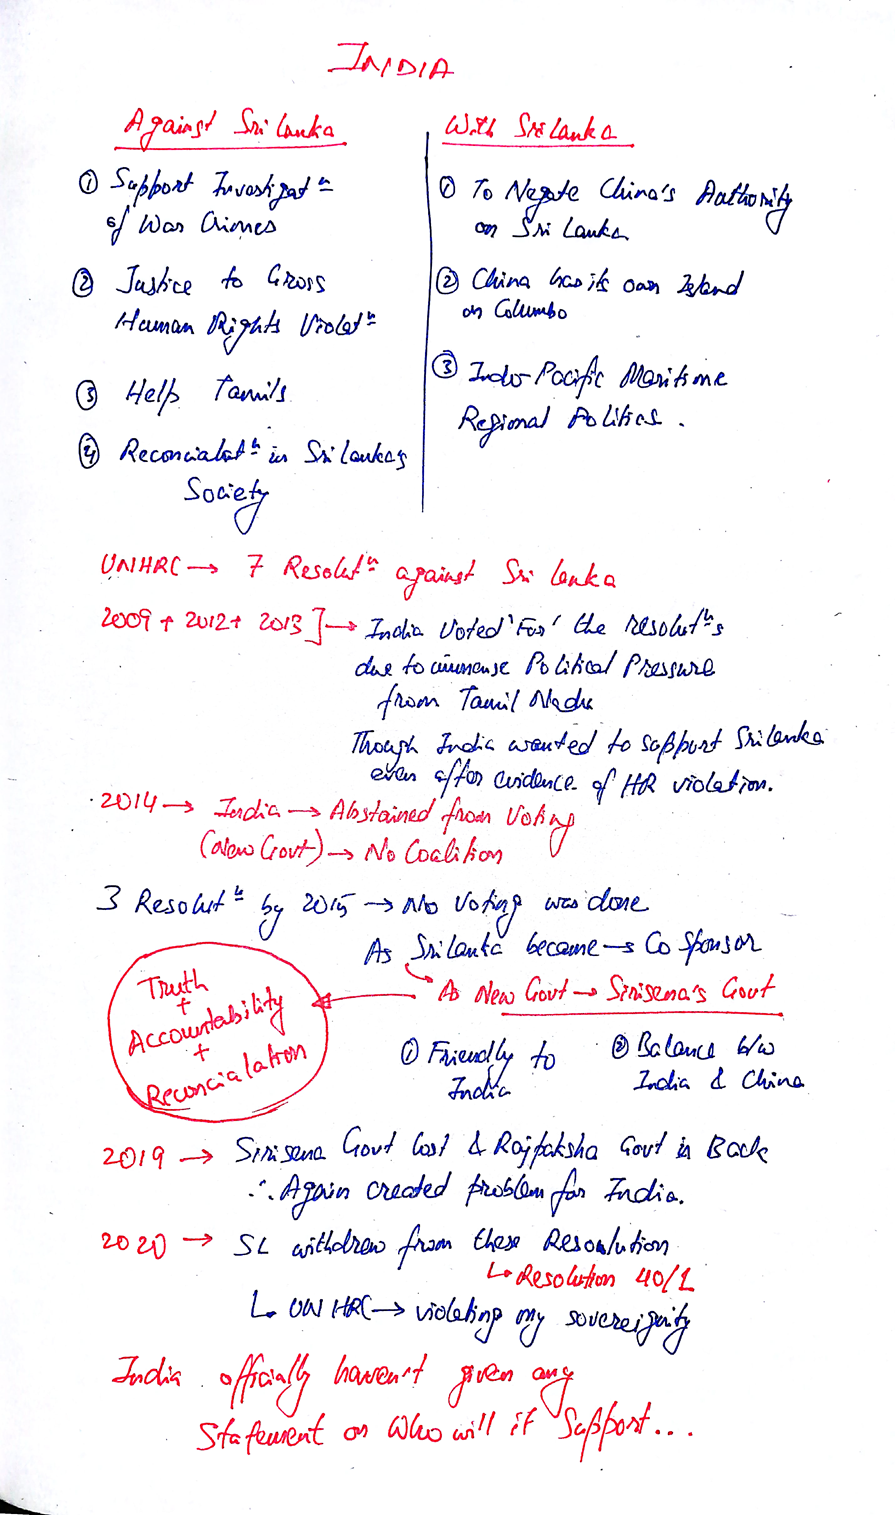 INDIA
Against Sri Lanka
① Support Investigatⁿ
of War Crimes
② Justice to Gross
Human Rights Violatⁿ
③ Help Tamils
④ Reconcialatⁿ in Sri Lanka's
Society
With Sri Lanka
① To Negate China's Authority
on Sri Lanka
② China has its own Island
on Columbo
③ Indo-Pacific Maritime
Regional Politics.
UNHRC → 7 Resolutⁿ against Sri Lanka
2009 + 2012 + 2013] → India Voted 'For' the resolutⁿs
due to immense Political Pressure
from Tamil Nadu
Though India wanted to support Sri Lanka
even after evidence of HR violation.
2014 → India → Abstained from Voting
(New Govt) → No Coalition
3 Resolutⁿ by 2015 → No Voting was done
As Sri Lanka became → Co Sponsor
As New Govt → Sirisena's Govt
Truth
+
Accountability
+
Reconcialation
① Friendly to
India
② Balance b/w
India & China
2019 → Sirisena Govt Lost & Rajpaksha Govt is Back
∴ Again created problem for India.
2020 → SL withdrew from these Resolution
↳ Resolution 40/1
↳ UNHRC → violating my sovereignity
India officially haven't given any
Statement on Who will it Support...